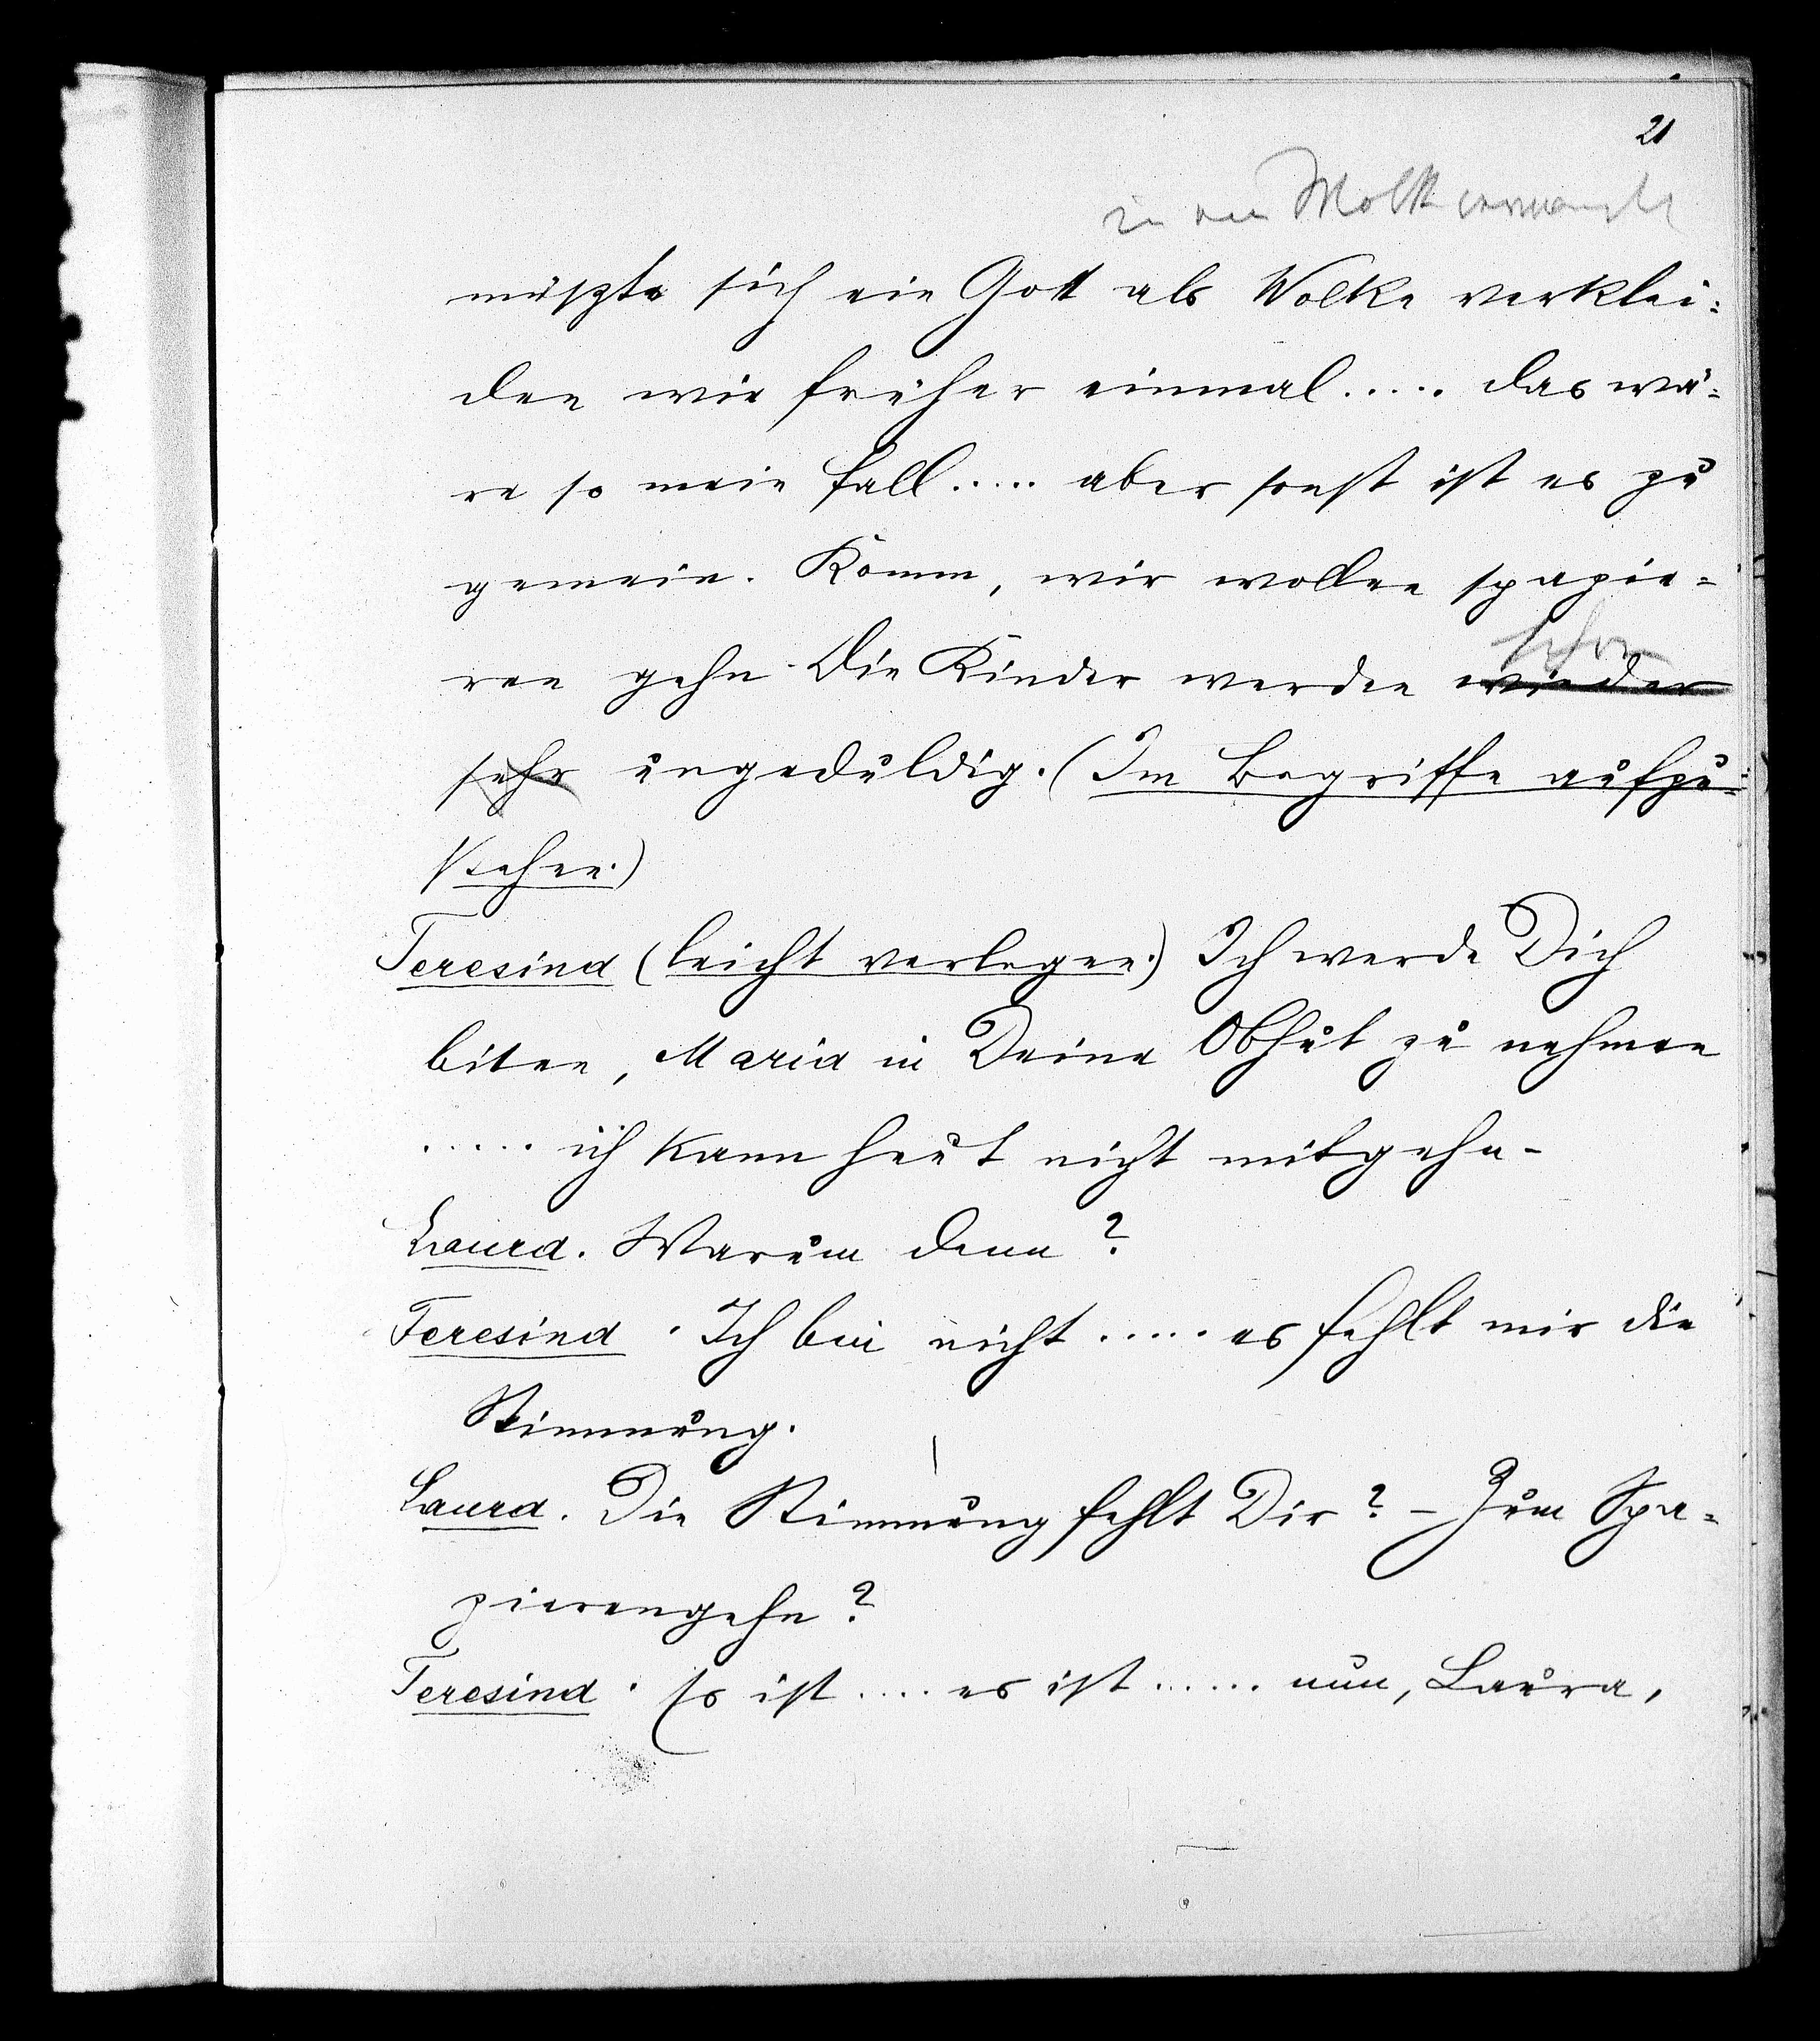 21
in eine Wolke verwandeln
müszte sich ein Gott als Wolke verklei:
den wie früher einmal..... das wä:
re so mein Fall..... aber sonst ist es zu
gemein. Komm, wir wollen spazie=
ren gehn. Die Kinder werden wieder schon
sehr ungeduldig. (Im Begriffe aufzu:
stehen.)
Teresina (leicht verlegen.) Ich werde Dich
biten, Maria in Deine Obhut zu nehmen
..... ich kann heut nicht mitgehn-
Laura. Warum denn?
Teresina. Ich bin nicht ..... es fehlt mir die
Stimmung.
Laura. Die Stimmung fehlt Dir? - Zum Spa=
zierengehn?
Teresina. Es ist .... es ist ...... nun, Laura,